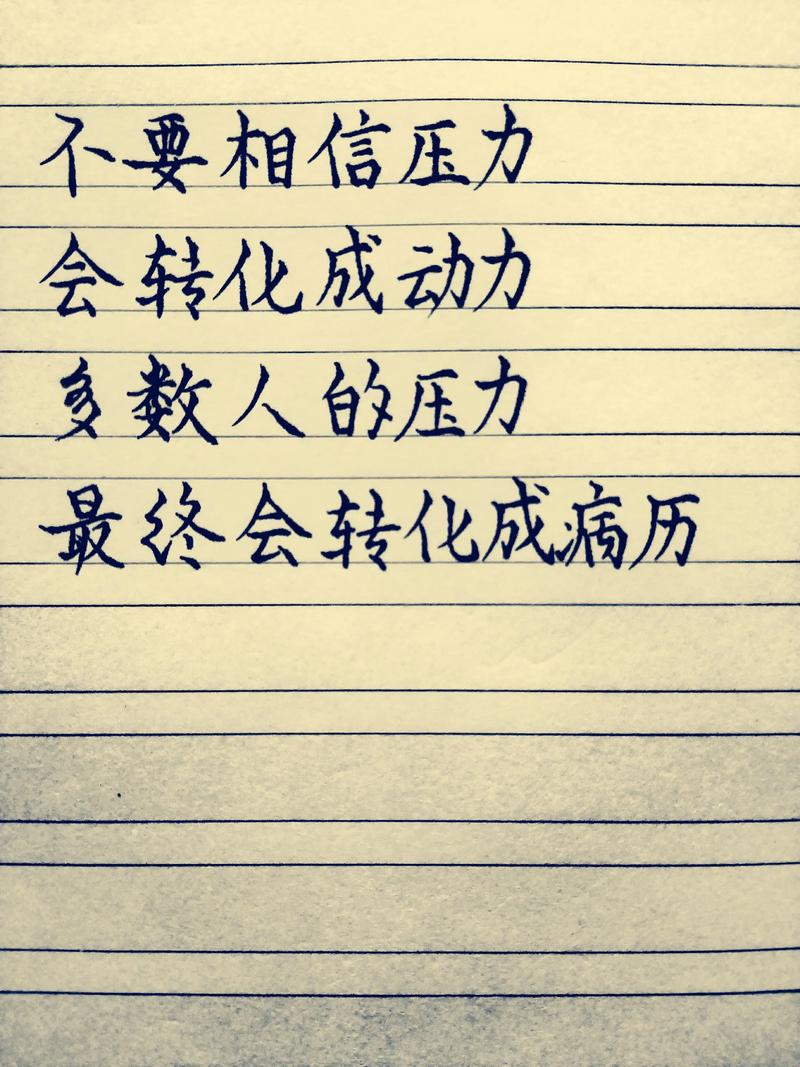 不要相信压力
会转化成动力
多数人的压力
最终会转化成病历